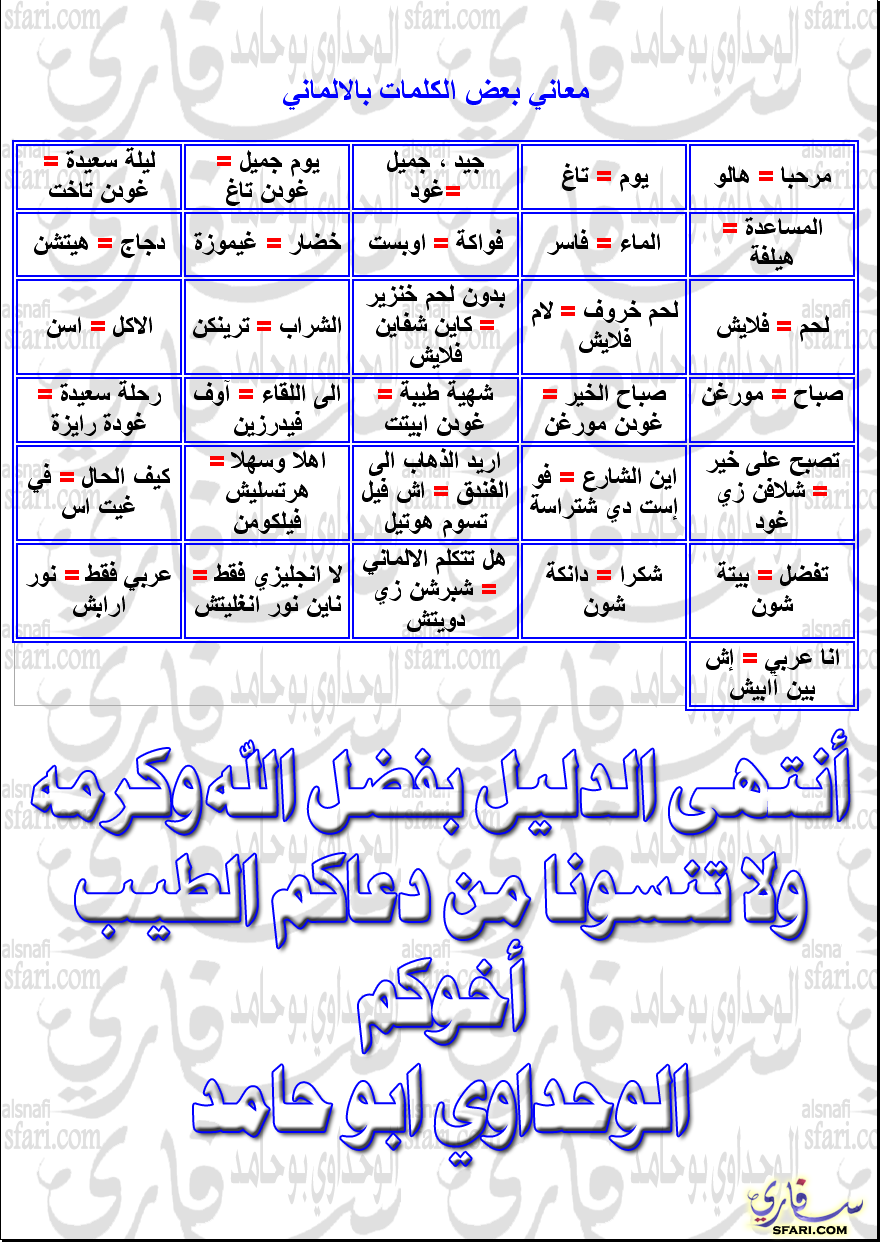 معاني بعض الكلمات بالالماني
مرحبا = هالو
يوم = تاغ
جيد ، جميل
=غود
يوم جميل =
غودن تاغ
ليلة سعيدة =
غودن تاخت
المساعدة =
هيلفة
الماء = فاسر
فواكة = اوبست
خضار = غيموزة
دجاج = هيتشن
لحم = فلايش
لحم خروف = لام
فلايش
بدون لحم خنزير
= كاين شفاين
فلايش
الشراب = ترينكن
الاكل = اسن
صباح = مورغن
صباح الخير =
غودن مورغن
شهية طيبة =
غودن ابيتت
الى اللقاء = آوف
فيدرزين
رحلة سعيدة =
غودة رايزة
تصبح على خير
= شلافن زي
غود
اين الشارع = فو
إست دي شتراسة
اريد الذهاب الى
الفندق = اش فيل
تسوم هوتيل
اهلا وسهلا =
هرتسليش
فيلكومن
كيف الحال = في
غيت اس
تفضل = بيتة
شون
شكرا = دانكة
شون
هل تتكلم الالماني
= شبرشن زي
دويتش
لا انجليزي فقط =
ناين نور انغليتش
عربي فقط = نور
ارابش
انا عربي = إش
بين آابيش
أنتهى الدليل بفضل الله وكرمه
ولا تنسونا من دعاكم الطيب
أخوكم
الوحداوي ابو حامد
سفاري
SFARI.COM